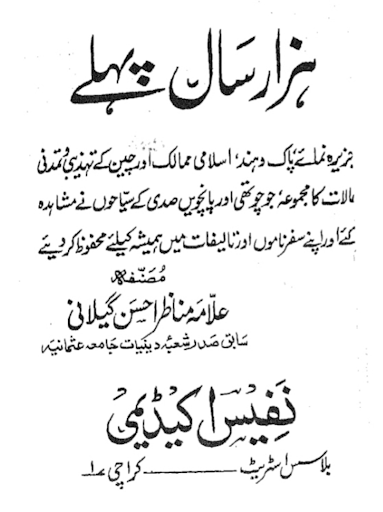 ہزار سال پہلے
جزیرہ نمائے پاک و ہند، اسلامی ممالک اور چین کے تہذیبی و تمدنی
حالات کا مجموعہ جو چوتھی اور پانچویں صدی کے سیّاحوں نے مشاہدہ
کئے اور اپنے سفر ناموں اور تالیفات میں ہمیشہ کیلئے محفوظ کر دیئے
مُصَنّفہ
علّامہ مناظر احسن گیلانی
سابق صدر شعبۂ دینیات جامعہ عثمانیہ
نفیس اکیڈیمی
بلاسس اسٹریٹ ـــــــ کراچی ۱